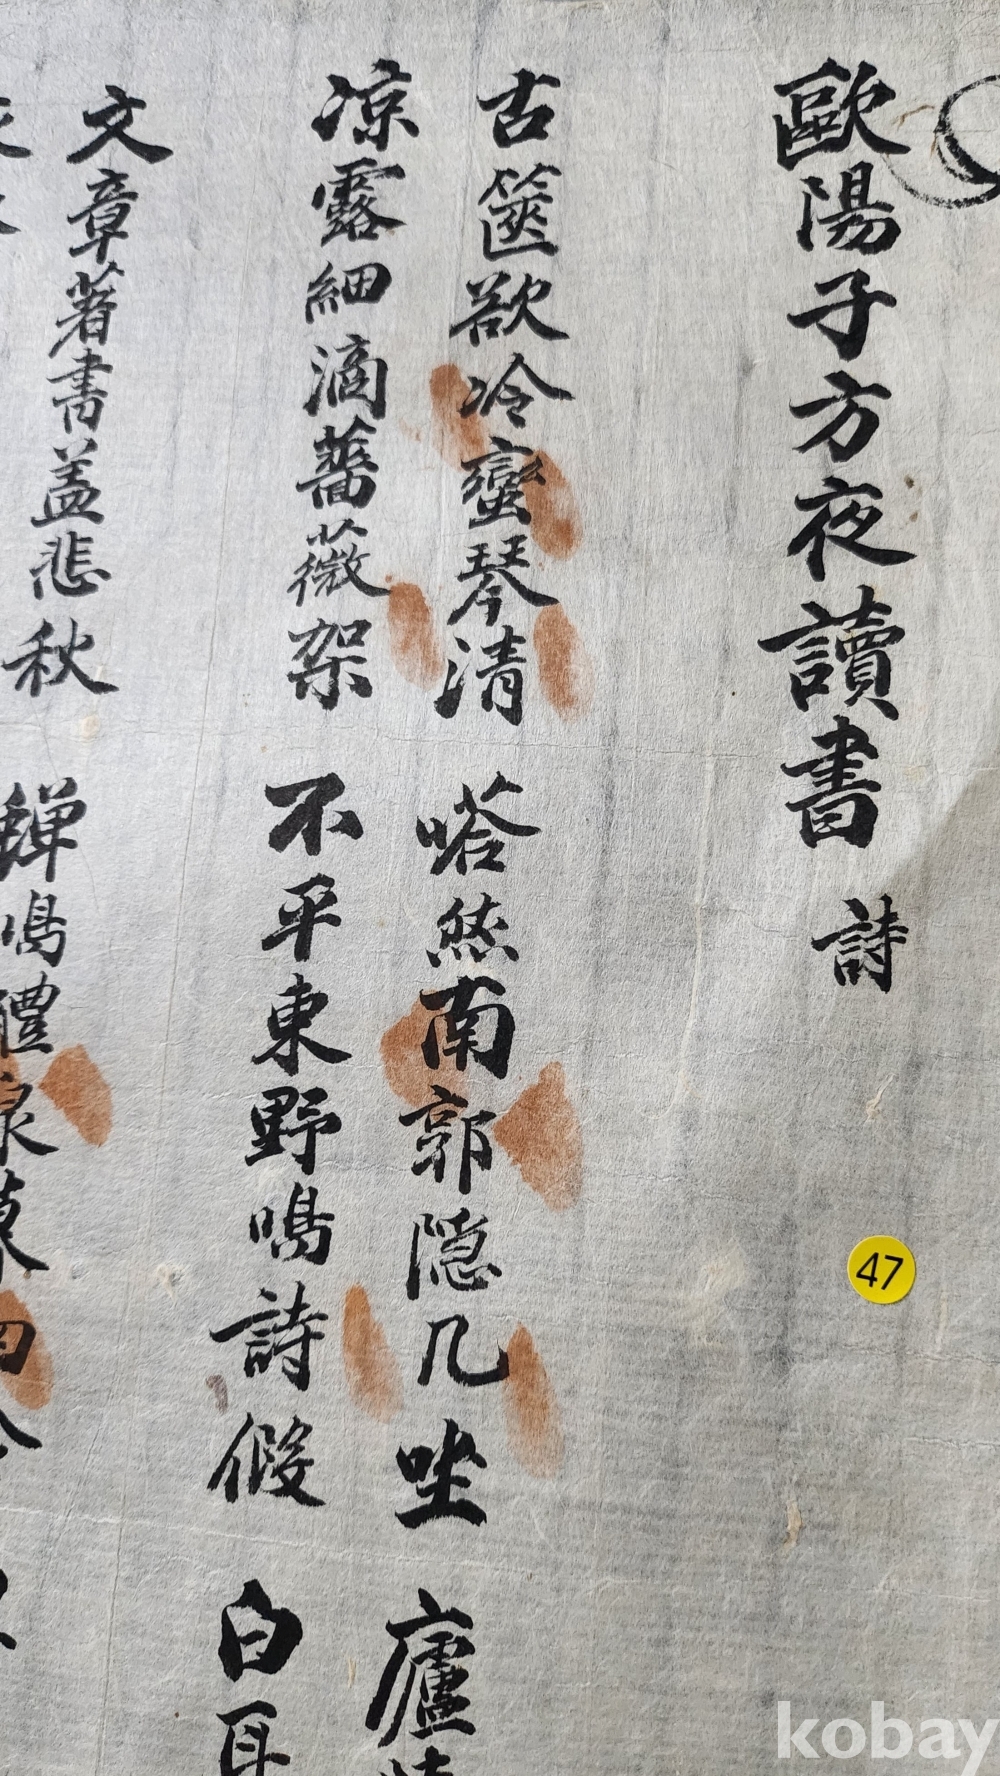 歐陽子方夜讀書 詩
古篋欲冷蠻琴清 嗒然南郭隠几坐 廬
凉露細滴薔薇架 不平東野鳴詩假 白耳
文章著書盖悲秋 蟬鳴醴泉
47
kobay